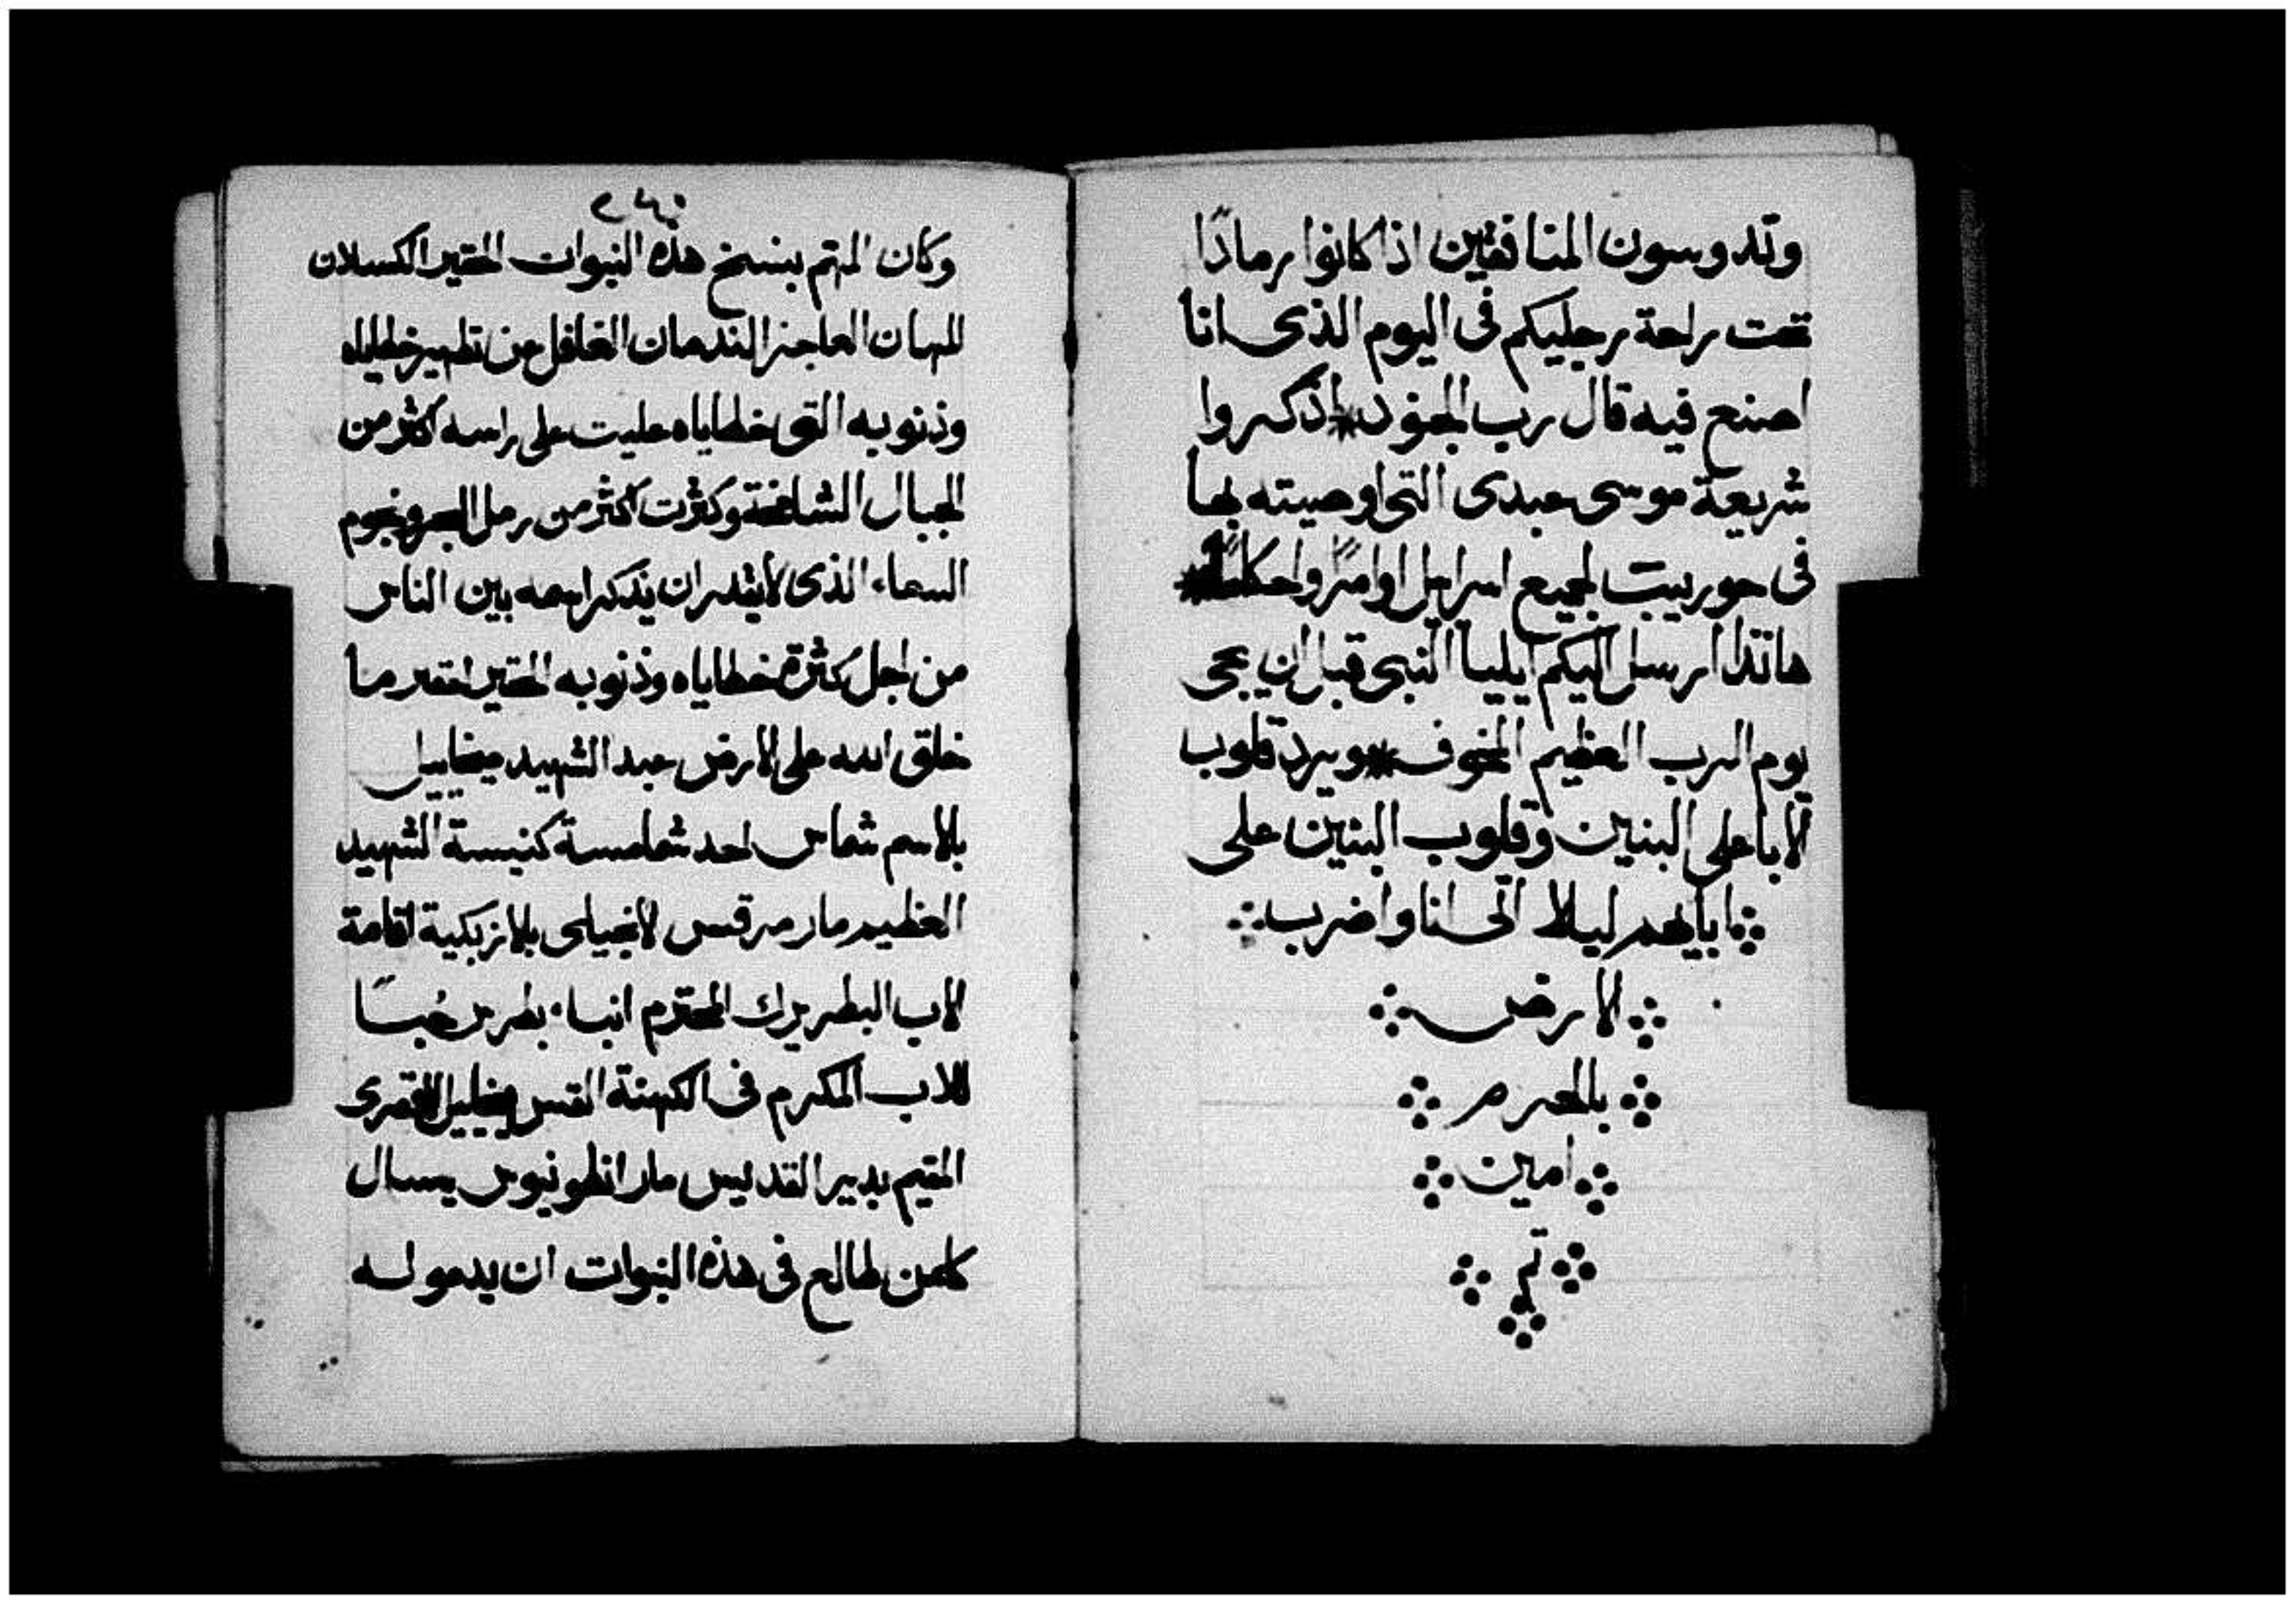 وتدوسون المنافقين اذا كانوا رمادًا
تحت راحة رجليكم فى اليوم الذى انا
اصنع فيه قال رب الجنود * اذكروا
شريعة موسى عبدى التى اوصيته بها
فى حوريب لجميع اسراييل اوامرًا واحكامًا *
هانذا ارسل اليكم ايليا النبى قبل ان يجى
يوم الرب العظيم المخوف * ويرد قلوب
الابا على البنين وقلوب البنين على
ابايهم ليلا اتى انا واضرب
الارض
بالحرم
امين
تم
وكان المهتم بنسخ هذه النبوات الحقير الكسلان
المهان العاجز الندمان الغافل من تطهير خطاياه
وذنوبه التى خطاياه عليت على راسه اكثر من
الجبال الشامخة وكثرت اكثر من رمل البحر ونجوم
السماء الذى لا يقدر ان يذكر اسمه بين الناس
من اجل كثرة خطاياه وذنوبه الحقير احقر ما
خلق الله على الارض عبد الشهيد ميخاييل
بالاسم شماس احد شمامسة كنيسة الشهيد
العظيم مار مرقس الانجيلى بالازبكية اقامة
الاب البطريرك المحترم انباء بطرس حُبسًا
للاب المكرم فى الكهنة القس ميخاييل
المقيم بدير القديس مار انطونيوس يسال
كلمن طالع فى هذه النبوات ان يدعو له